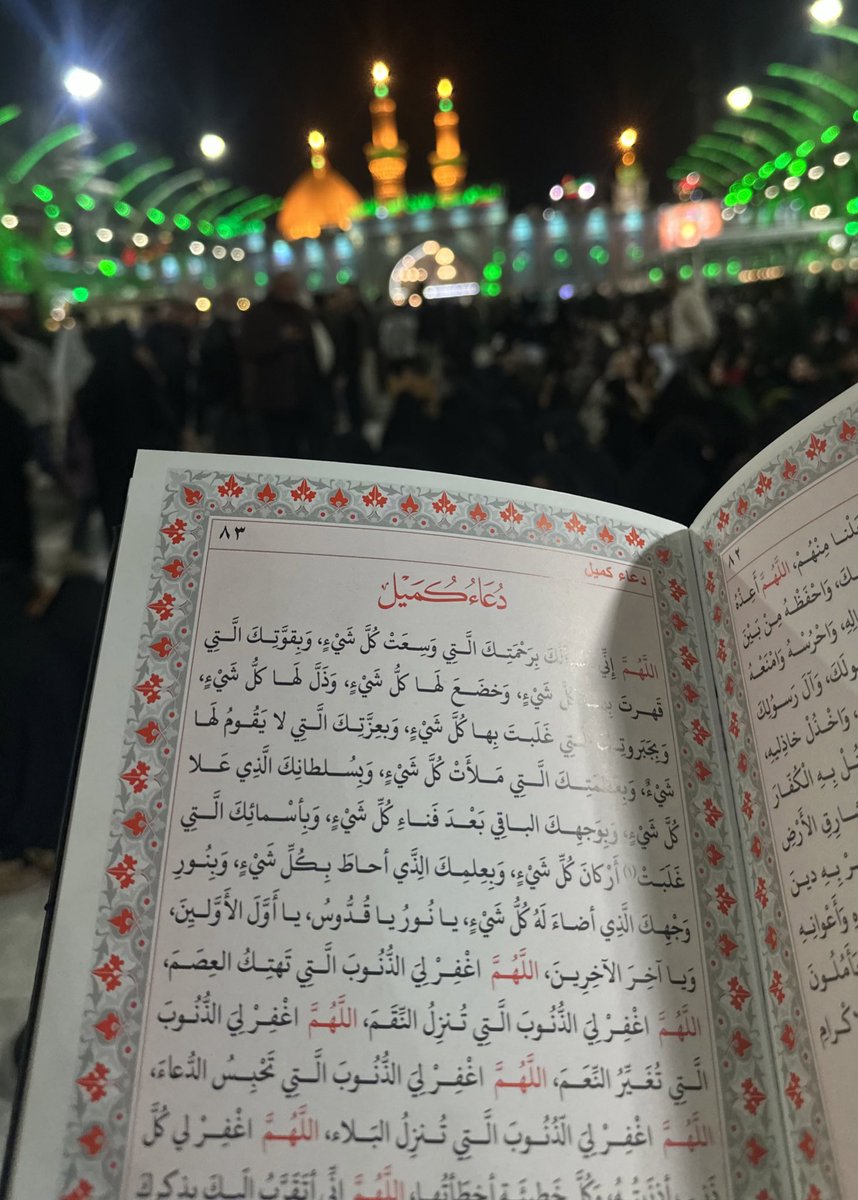 ٨٣
دعاء كميل
دُعَاءُ كُمَيْل
اللَّهُمَّ إِنِّي بِرَحْمَتِكَ الَّتِي وَسِعَتْ كُلَّ شَيْءٍ، وَبِقوَّتِـكَ الَّتِي
قَهرتَ شَيْءٍ، وَخضَـعَ لَهـا كلُّ شَيْءٍ، وَذَلَّ لَهـا كلُّ شَيْءٍ،
وَبِجَبَروتِـ غَلَبـتَ بِهـا كُلَّ شَيْءٍ، وَبعِزَّتِـكَ الَّتِي لا يَقُـومُ لَهَا
شَيْءٌ، وَبِعَظَمَتِـكَ الَّـتِي مَـلأَتْ كُلَّ شَيْءٍ، وَبِسُـلطانِكَ الَّذِي عَـلا
كُلَّ شَيْءٍ، وَبِوَجهِـكَ الباقِي بَعْـدَ فَنـاءِ كُلِّ شَيْءٍ، وَبِأسْـمائِكَ الَّـتِي
غَلَبَـتْ(١) أَرْكانَ كُلِّ شَيْءٍ، وَبعِلمِـكَ الَّذِي أحاطَ بِـكُلِّ شَيْءٍ، وَبِنُـورِ
وَجْهِـكَ الَّذِي أضـاءَ لَهُ كُلُّ شَيْءٍ، يـا نُـورُ يـا قُـدُّوسُ، يـا أَوَّلَ الأَوَّلـينَ،
وَيـا آخِـرَ الآخِرِيـنَ، اللَّهُـمَّ اغْفِـرْ لِيَ الذُّنُـوبَ الَّـتِي تَهتِـكُ العِصَـمَ،
اللَّهُـمَّ اغْفِـرْ لِيَ الذُّنُـوبَ الَّـتِي تُـنزِلُ النِّقَـمَ، اللَّهُـمَّ اغْفِـرْ لِيَ الذُّنُـوبَ
الَّـتِي تُغَـيِّرُ النِّعَـمَ، اللَّهُـمَّ اغْفِـرْ لِيَ الذُّنُـوبَ الَّـتِي تَحْبِـسُ الدُّعـاءَ،
اللَّهُـمَّ اغْفِـرْ لِيَ الذُّنُـوبَ الَّـتِي تُـنزِلُ البَـلاء، اللَّهُـمَّ اغْفِـرْ لي كُلَّ
أَذْنَبْتُـهُ، وَكُلَّ خَطِيئَـةٍ أخطَأتُهـا، اللَّهُـمَّ إنِّي أتَقَـرَّبُ إلَيـكَ بِذِكرِكَ
٨٢
مِنْهُـمْ، اللَّهُمَّ أَعِذْهُ
وَاحْفَظْـهُ مِـنْ بَـيْنِ
وَاحْرُسْـهُ وَامْنَعْـهُ
وَآلَ رَسُولِكَ
وَاخْذُلْ خاذِلِيهِ،
بِـهِ الْكُفّـارَ
الأَرْضِ
بِـهِ دِيـنَ
وَأَعْوانِـهِ